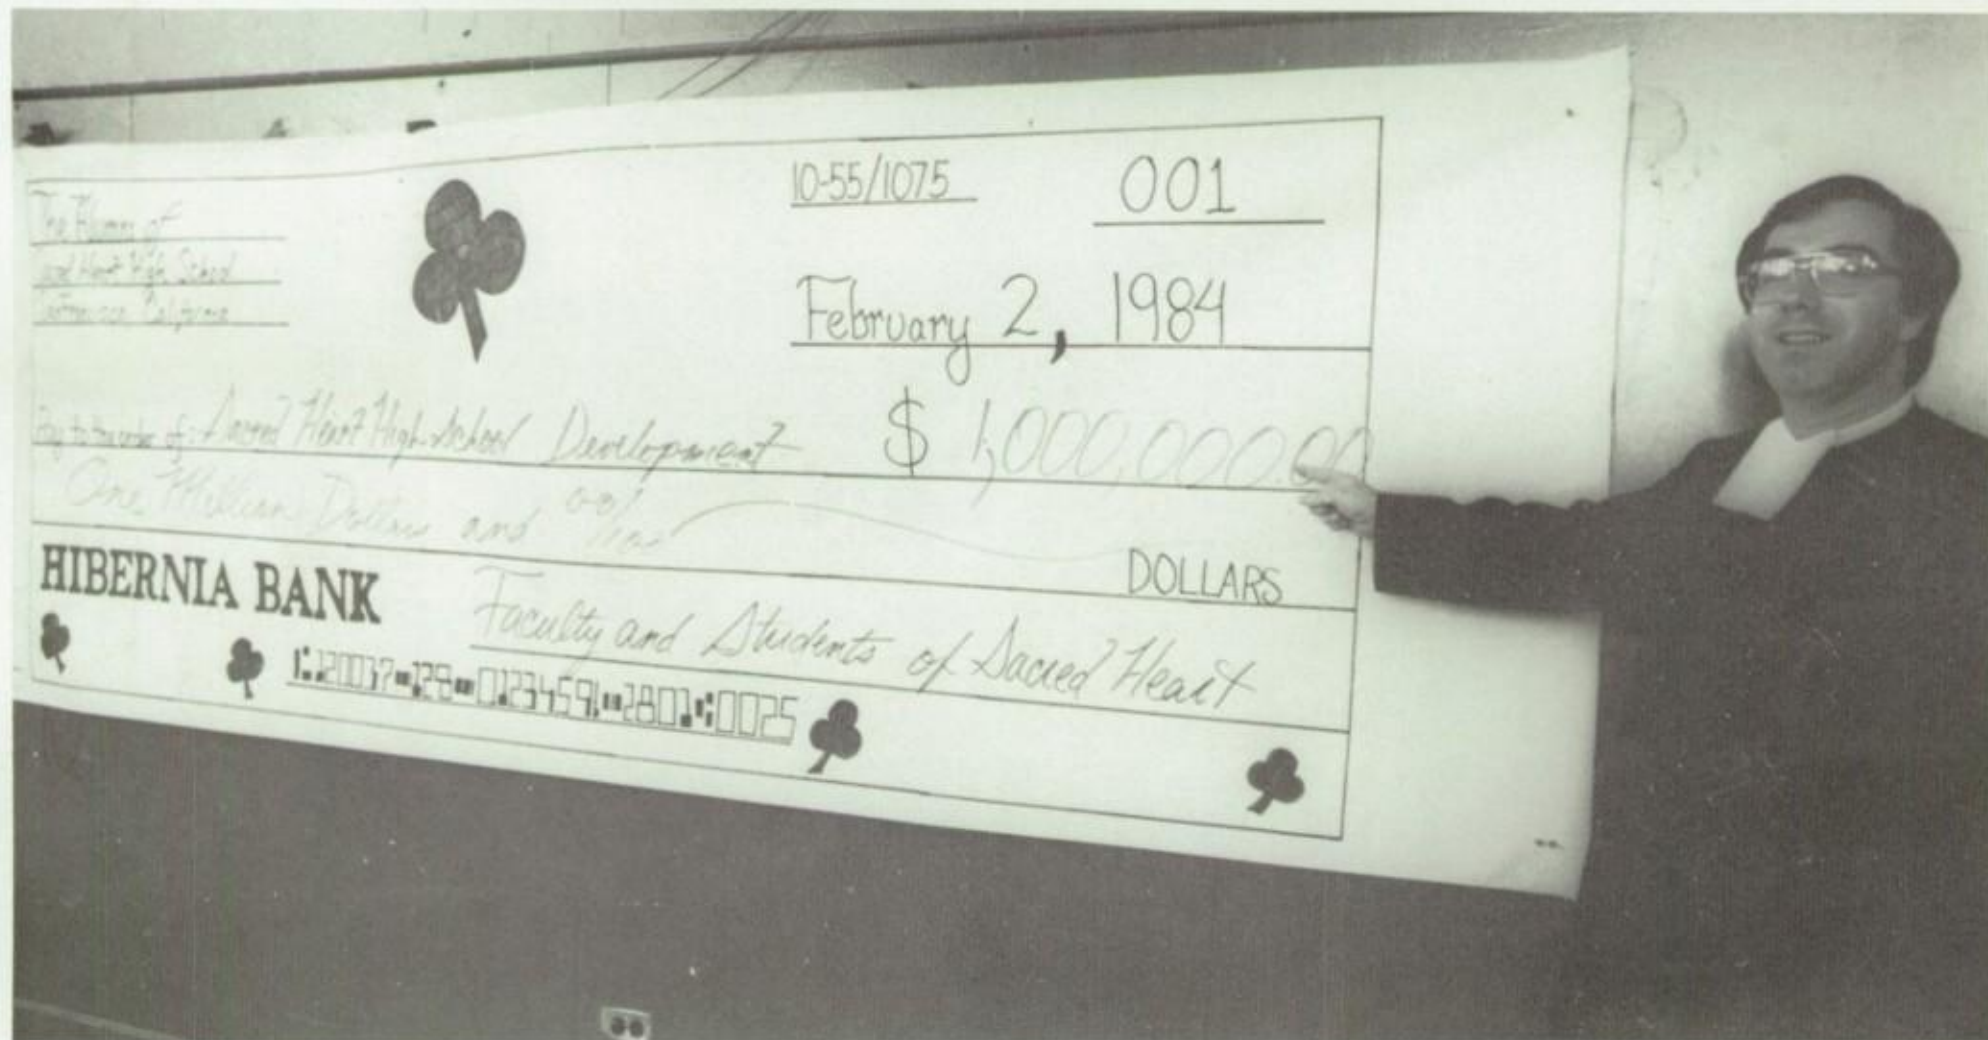 The Alumni of
Sacred Heart High School
San Francisco, California
10-55/1075
001
February 2, 1984
Pay to the order of: Sacred Heart High School Development $ 1,000,000.00
One Million Dollars and 00/100
DOLLARS
HIBERNIA BANK
Faculty and Students of Sacred Heart